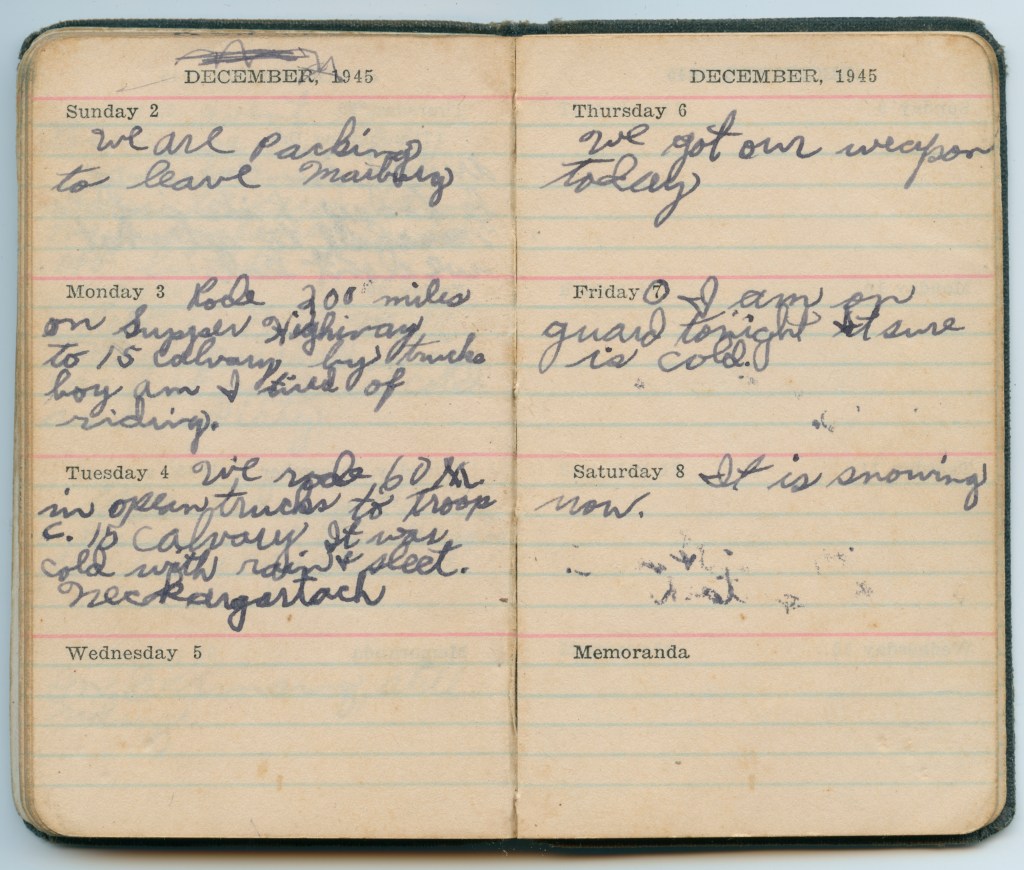 DECEMBER, 1945
Sunday 2
We are packing
to leave Marburg
Monday 3 Rode 200 miles
on Supper Highway
to 15 Calvary by trucks
boy am I tired of
riding.
Tuesday 4 We rode 60
in open trucks to troop
C. 15 Calvary It was
cold with rain & sleet.
Neckargartach
Wednesday 5
DECEMBER, 1945
Thursday 6
We got our weapon
today
Friday 7 I am on
guard tonight & it sure
is cold.
Saturday 8 It is snowing
now.
Memoranda